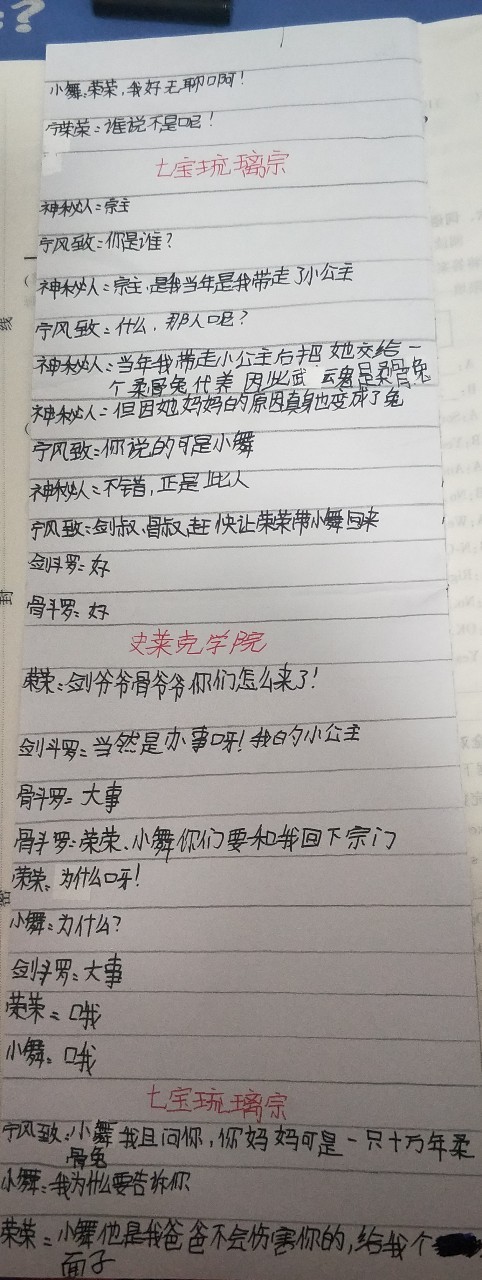 小舞:荣荣,我好无聊啊!
宁荣荣:谁说不是呢!
七宝琉璃宗
神秘人:宗主
宁风致:你是谁?
神秘人:宗主,是我当年是我带走了小公主
宁风致:什么,那人呢?
神秘人:当年我带走小公主后把她交给一
个柔骨兔代养 因此武魂是柔骨兔
神秘人:但因她妈妈的原因真身也变成了兔
宁风致:你说的可是小舞
神秘人:不错,正是此人
宁风致:剑叔、骨叔,赶快让荣荣带小舞回来
剑斗罗:好
骨斗罗:好
史莱克学院
荣荣:剑爷爷骨爷爷你们怎么来了!
剑斗罗:当然是办事呀!我的小公主
骨斗罗:大事
骨斗罗:荣荣、小舞你们要和我回下宗门
荣荣:为什么呀!
小舞:为什么?
剑斗罗:大事
荣荣:哦
小舞:哦
七宝琉璃宗
宁风致:小舞我且问你,你妈妈可是一只十万年柔
骨兔
小舞:我为什么要告诉你
荣荣:小舞他是我爸爸不会伤害你的,给我个
面子
线
封
密